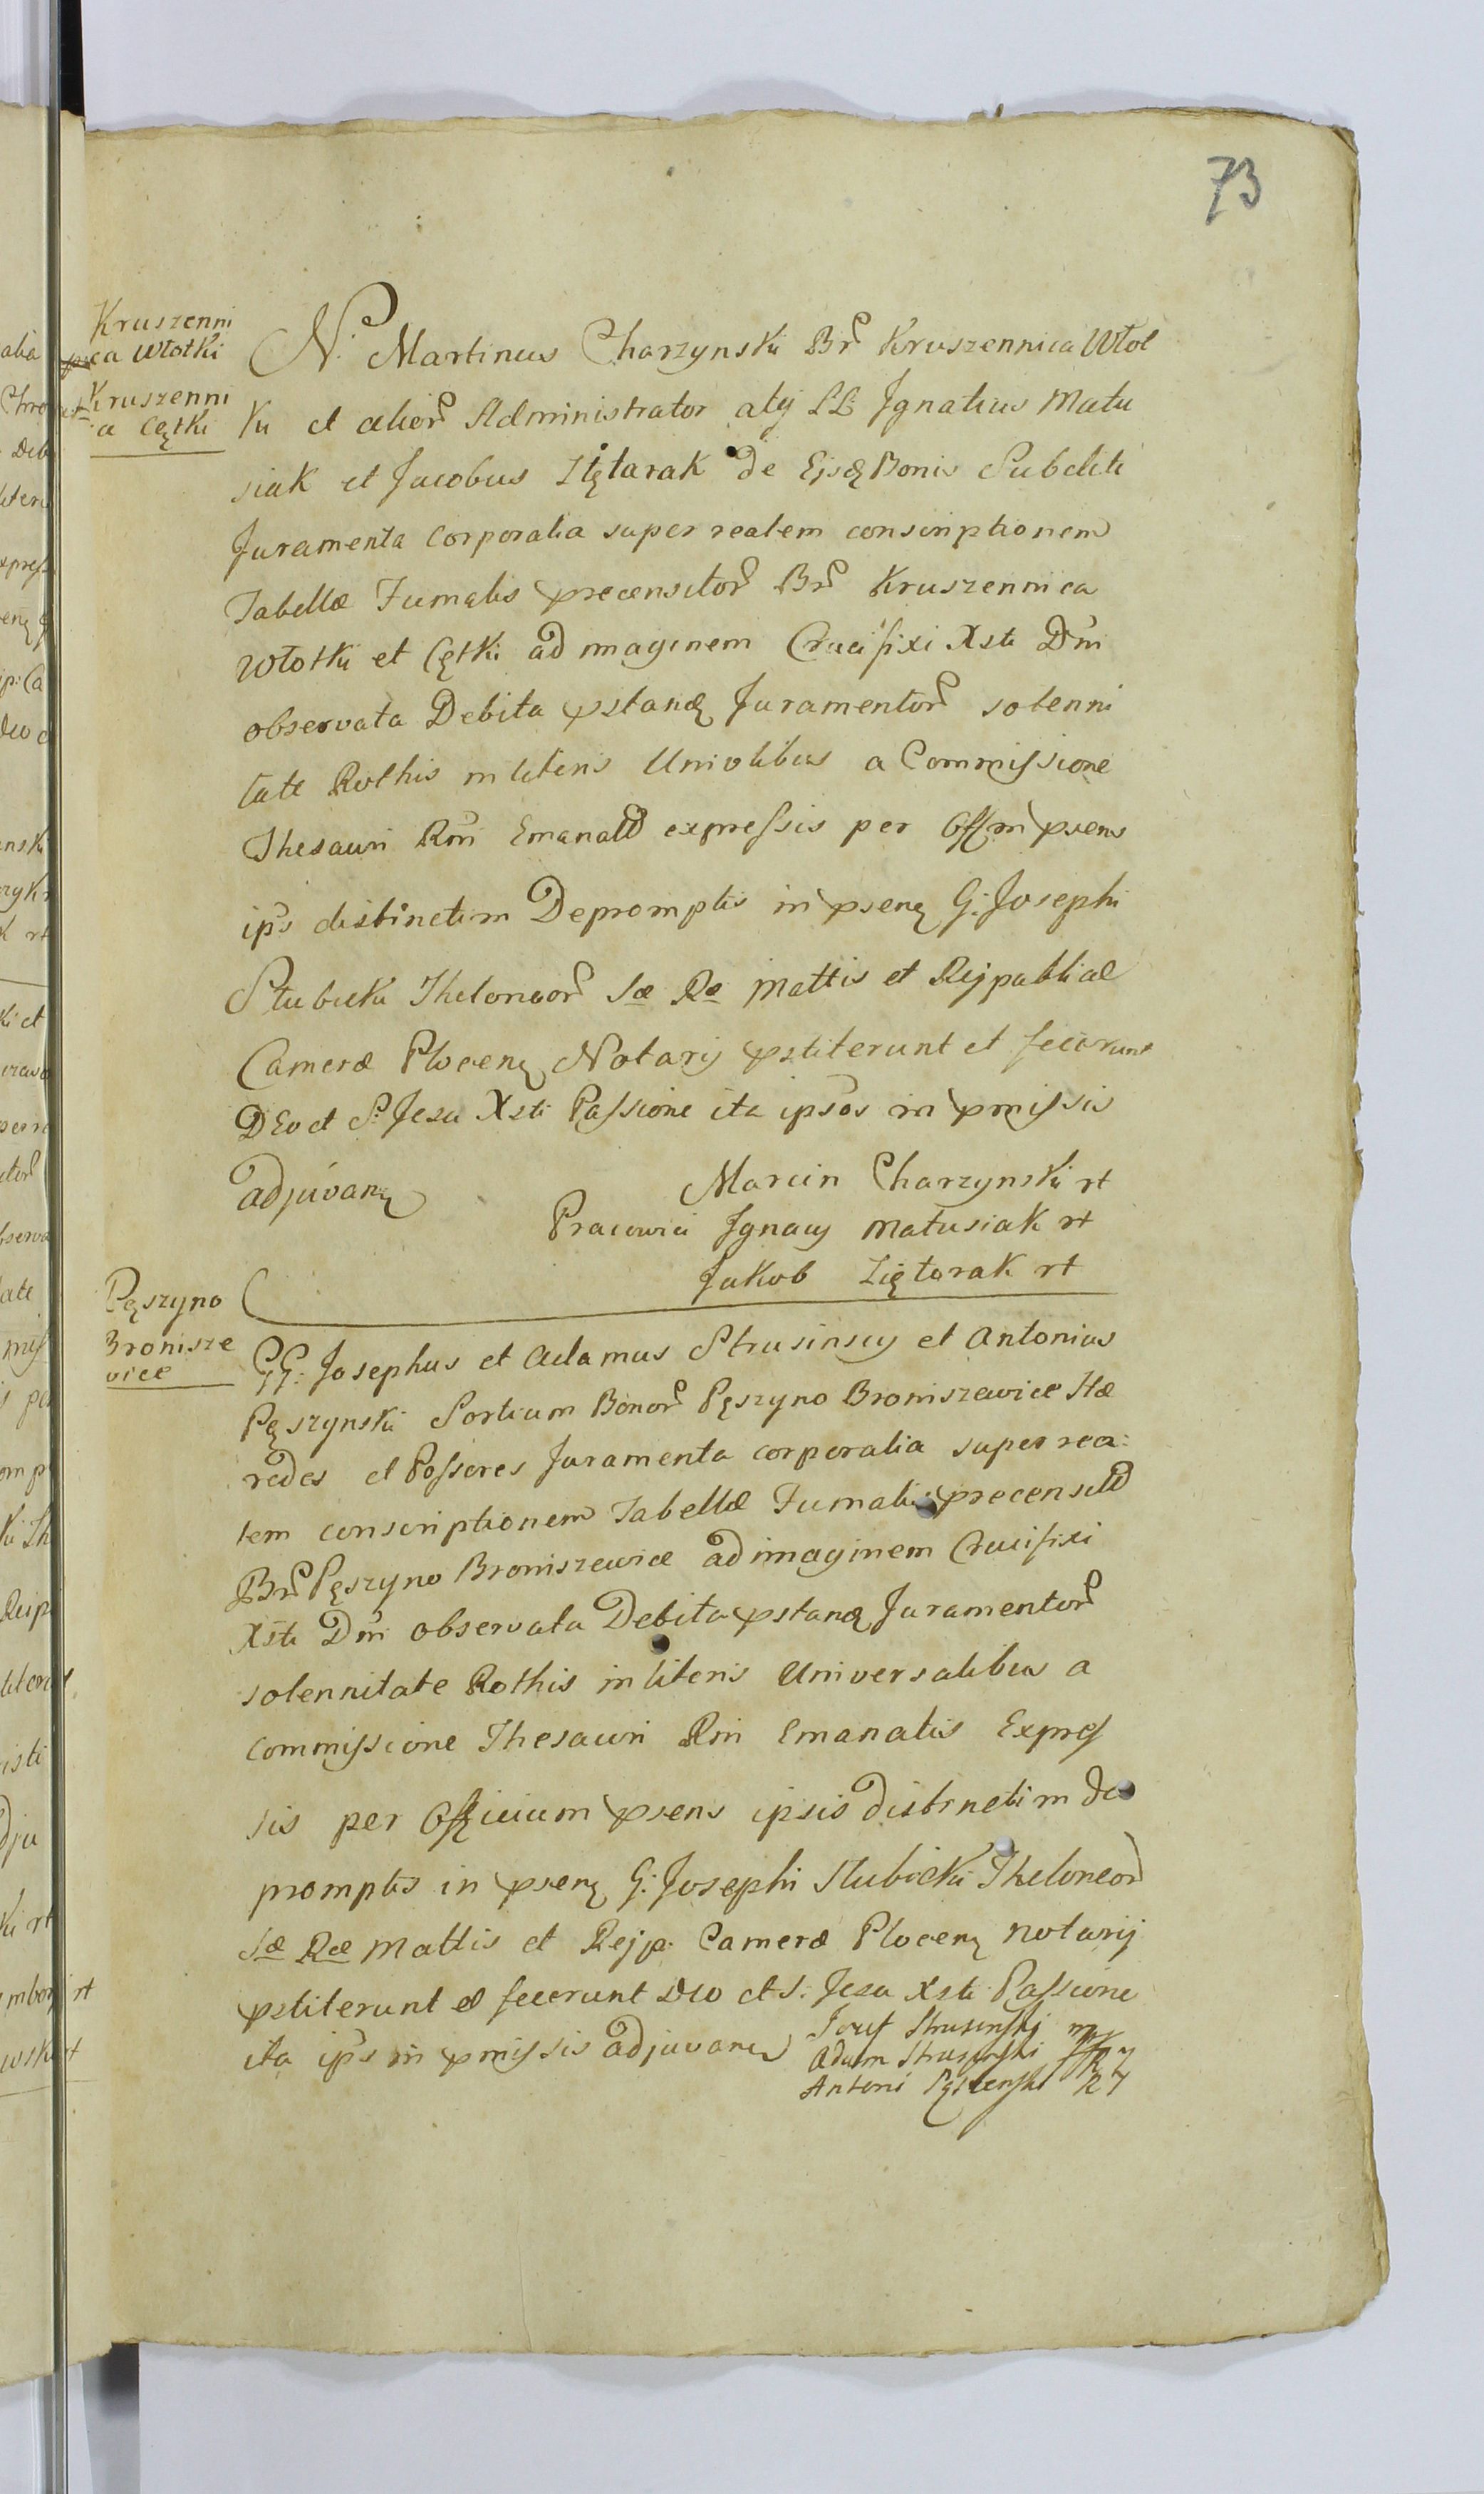 73
Kruszenni
ca Włotki
Kruszenni
ca Cętki
N. Martinus Charzynski Brͬ Kruszennica Włot
ki et alior Administrator atq LL Jgnatius Matu
siak et Jacobus Iętarak de Ejsdę Bonis Subditi
Juramenta Corporalia super realem conscriptionem
Tabellæ Fumalis precensitor Brͬ Kruszennica
Włotki et Cętki ad imaginem Crucifixi Xsti Dni
observata Debita pstandę Juramentor solenni
tate Rothis in literis Univlibus a Commissione
Thesauri Rni Emanatis expressis per Offm psens
ips distinctim Depromptis in psenę G: Josephi
Stubicki Theloneor Sæ Ræ Mattis et Rejpublicæ
Cameræ Plocenę Notarij pstiterunt et fecerunt
DEo et S: Jesu Xsti Passione ita ipsos in pmissis
adjuvanę
Marcin Charzynski rt
Pracowici Jgnacy Matusiak rt
Jakob Ziętarak rt
Pęszyno
Bronisze
vice
GG: Josephus et Adamus Strusinscy et Antonius
Pęszynski Sortium Bonor Pęszyno Broniszewice Hæ
redes et Possores Juramenta corporalia super rea:
lem conscriptionem Tabellæ Fumalis precensitor
Brͬ Pęszyno Broniszewice ad imaginem Crucifixi
Xsti Dni observata Debita pstandę Juramentor
solennitate Rothis in literis Universalibus a
Commissione Thesauri Rni Emanatis Expres
sis per Officium psens ipsis distinctim de
promptis in psenę G: Josephi Stubicki Theloneor
Sæ Ræ Mattis et Rejp: Cameræ Plocenę Notarij
pstiterunt et fecerunt DEO et S: Jesu Xsti Passione
ita ips in pmissis adjuvanę
Jozef Strusinski
Adam Strusinski
Antoni Pęszenski